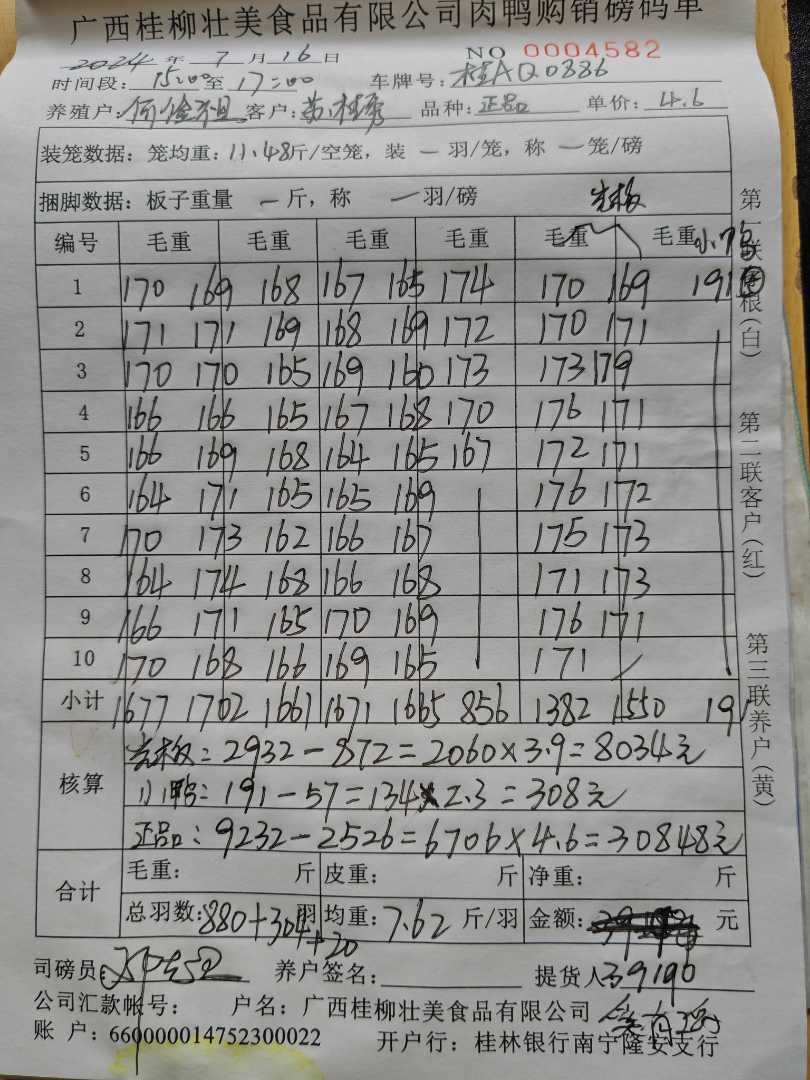 广西桂柳壮美食品有限公司肉鸭购销磅码单
2024 年 7 月 16 日 NO 0004582
时间段: 15:00 至 17:00 车牌号: 桂AQ0886
养殖户: 客户: 品种: 正品 单价: 4.6
装笼数据: 笼均重: 11.48 斤/空笼, 装 一 羽/笼, 称 一 笼/磅
捆脚数据: 板子重量 一 斤, 称 一 羽/磅 光板
编号 毛重 毛重 毛重 毛重 毛重 毛重 小鸭
1 170 169 168 167 165 174 170 169 191 ⑤
2 171 171 169 168 169 172 170 171
3 170 170 165 169 160 173 173 179
4 166 166 165 167 168 170 176 171
5 166 169 168 164 165 167 172 171
6 164 171 165 165 169 176 172
7 170 173 162 166 167 175 173
8 164 174 168 166 168 171 173
9 166 171 165 170 169 176 171
10 170 168 166 169 165 171
小计 1677 1702 1661 1671 1665 856 1382 1550 191
核算
光板: 2932-872=2060×3.9=8034元
小鸭: 191-57=134×2.3=308元
正品: 9232-2526=6706×4.6=30848元
合计
毛重: 斤 皮重: 斤 净重: 斤
总羽数: 880+304+20 羽 均重: 7.62 斤/羽 金额: 元
司磅员: 养户签名: 提货人: 39190
公司汇款帐号: 户名: 广西桂柳壮美食品有限公司
账 户: 660000014752300022 开户行: 桂林银行南宁隆安支行
第一联存根(白)
第二联客户(红)
第三联养户(黄)